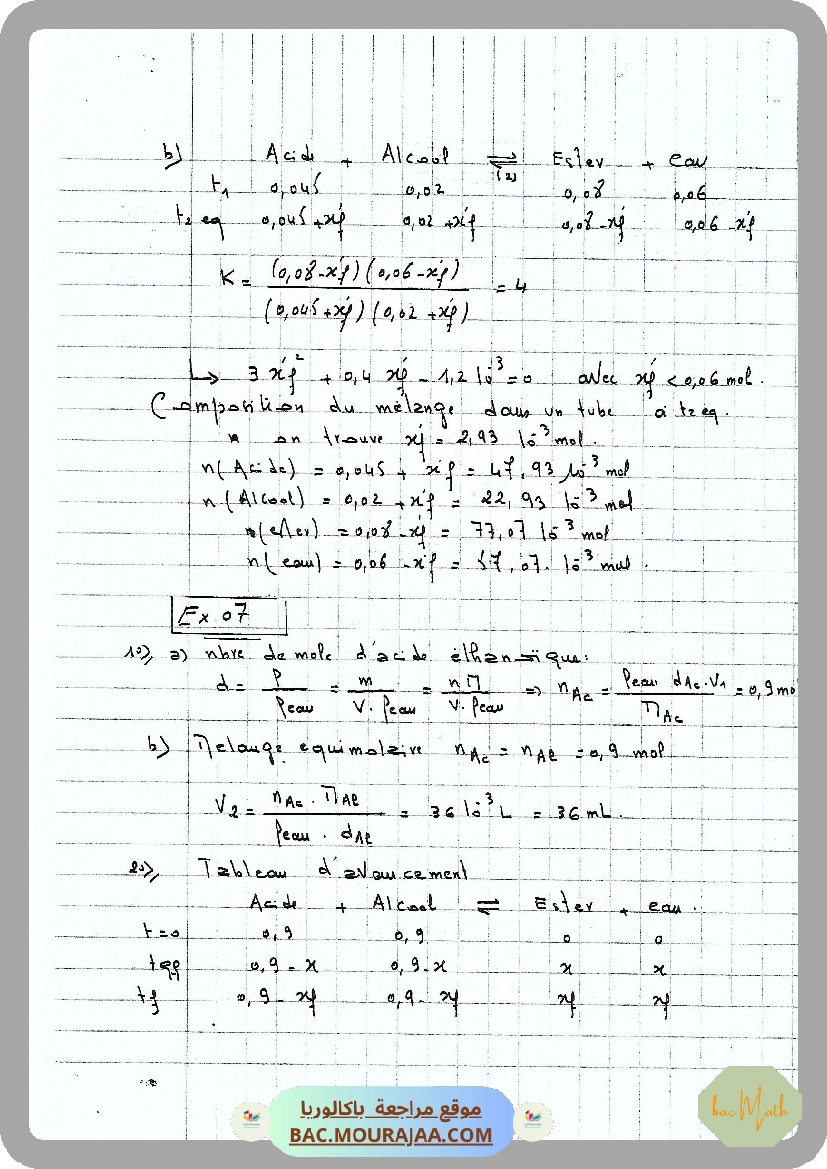 b) Acide + Alcool ⇌ Ester + eau
(2)
t1 0,045 0,02 0,08 0,06
t2 eq 0,045+x'f 0,02+x'f 0,08-x'f 0,06-x'f
K = (0,08-x'f)(0,06-x'f) / (0,045+x'f)(0,02+x'f) = 4
↳ 3x'f² + 0,4 x'f - 1,2 10⁻³ = 0 avec x'f < 0,06 mol.
Composition du mélange dans un tube à t2 eq.
* on trouve x'f = 2,93 10⁻³ mol.
n(Acide) = 0,045 + x'f = 47,93 10⁻³ mol
n(Alcool) = 0,02 + x'f = 22,93 10⁻³ mol
n(ester) = 0,08 - x'f = 77,07 10⁻³ mol
n(eau) = 0,06 - x'f = 57,07. 10⁻³ mol.
Ex 07
1°) a) nbre de mole d'acide éthanoïque:
d = ρ / ρeau = m / V.ρeau = nM / V.ρeau ⇒ nAc = ρeau dAc.V1 / MAc = 0,9 mo
b) Melange equimolaire nAc = nAl = 0,9 mol
V2 = nAc . MAl / ρeau . dAl = 36 10⁻³ L = 36 mL.
2°) Tableau d'avancement
Acide + Alcool ⇌ Ester + eau.
t=0 0,9 0,9 0 0
0,9-x 0,9-x x x
tf 0,9-xf 0,9-xf xf xf
موقع مراجعة باكالوريا
BAC.MOURAJAA.COM
bac Math